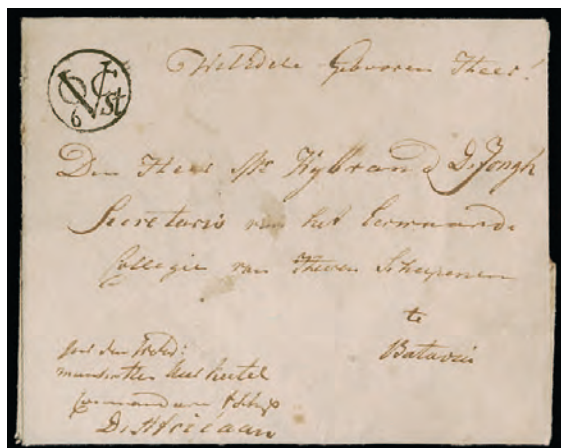 VOC
6 st
WelEdele Gebooren Heer!
Den Heer Mr Wybrand D. Jongh
Secretaris van het Eerwaarde
Collegie van Heeren Schepenen
te
Batavia
den
Commandeur
D'Africaan